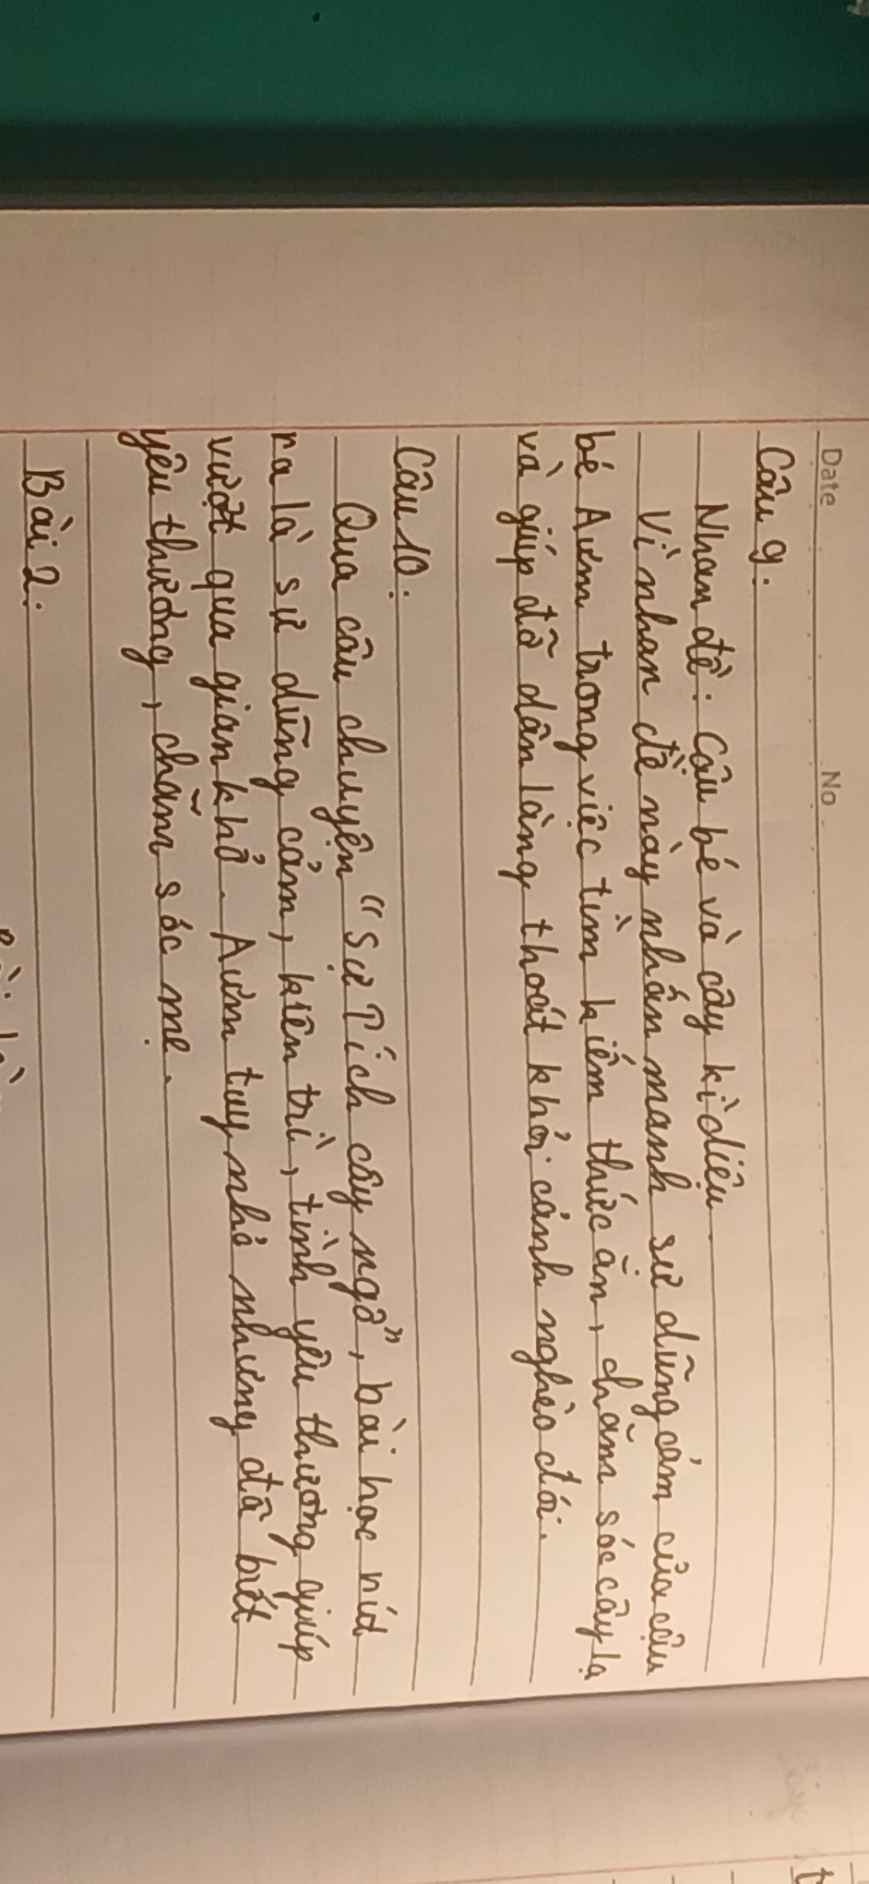 Date No
Câu 9.
Nhan đề: Cậu bé và cây kì diệu
Vì nhan đề này nhấn mạnh sự dũng cảm của cậu
bé Aưm trong việc tìm kiếm thức ăn, chăm sóc cây lạ
và giúp đỡ dân làng thoát khỏi cảnh nghèo đói.
Câu 10:
Qua câu chuyện "Sự Tích cây ngô", bài học rút
ra là sự dũng cảm, kiên trì, tình yêu thương giúp
vượt qua gian khổ. Aưm tuy nhỏ nhưng đã biết
yêu thương, chăm sóc mẹ.
Bài 2: